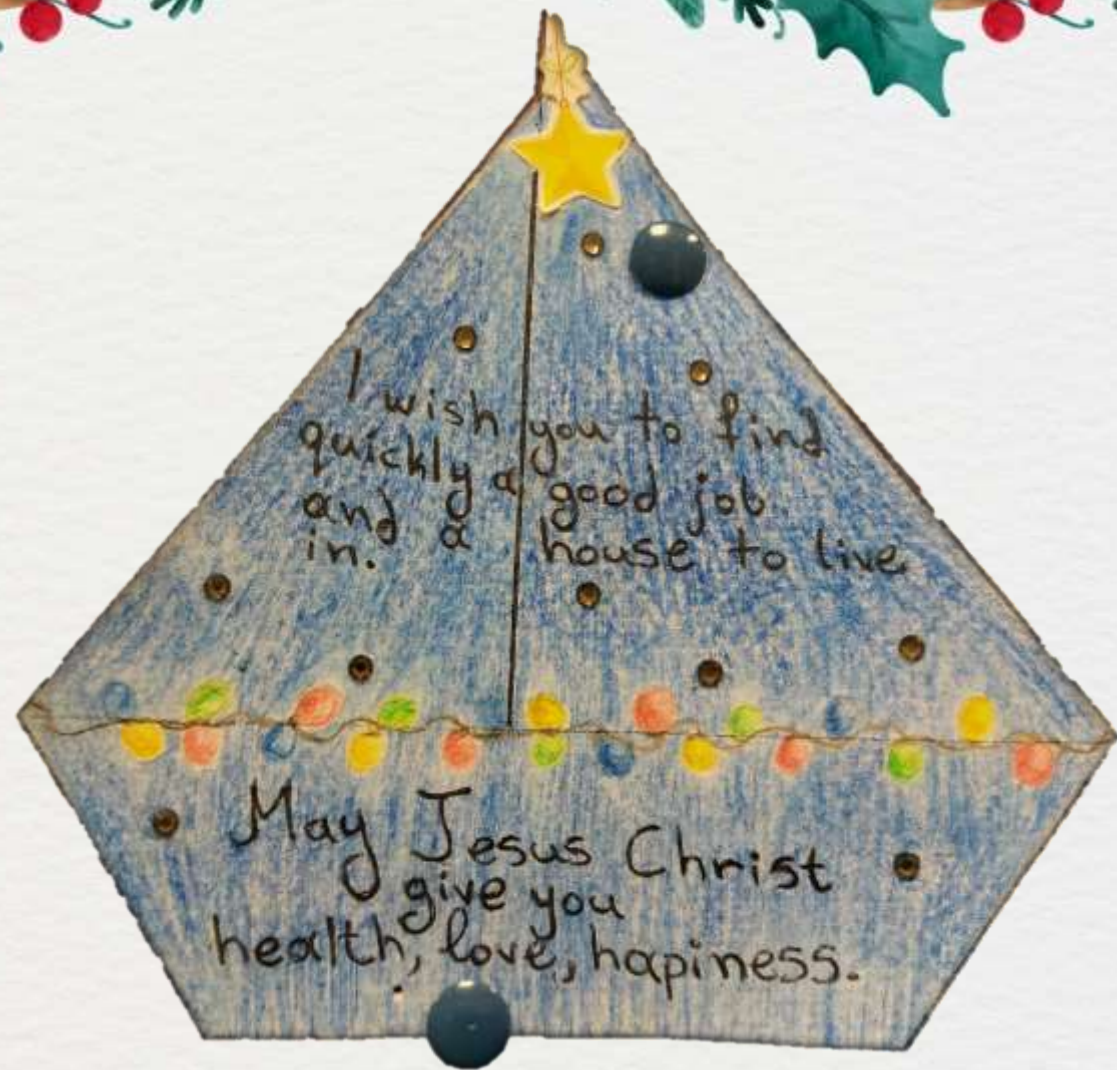 I wish you to find
quickly a good job
and a house to live
in.
May Jesus Christ
give you
health, love, hapiness.